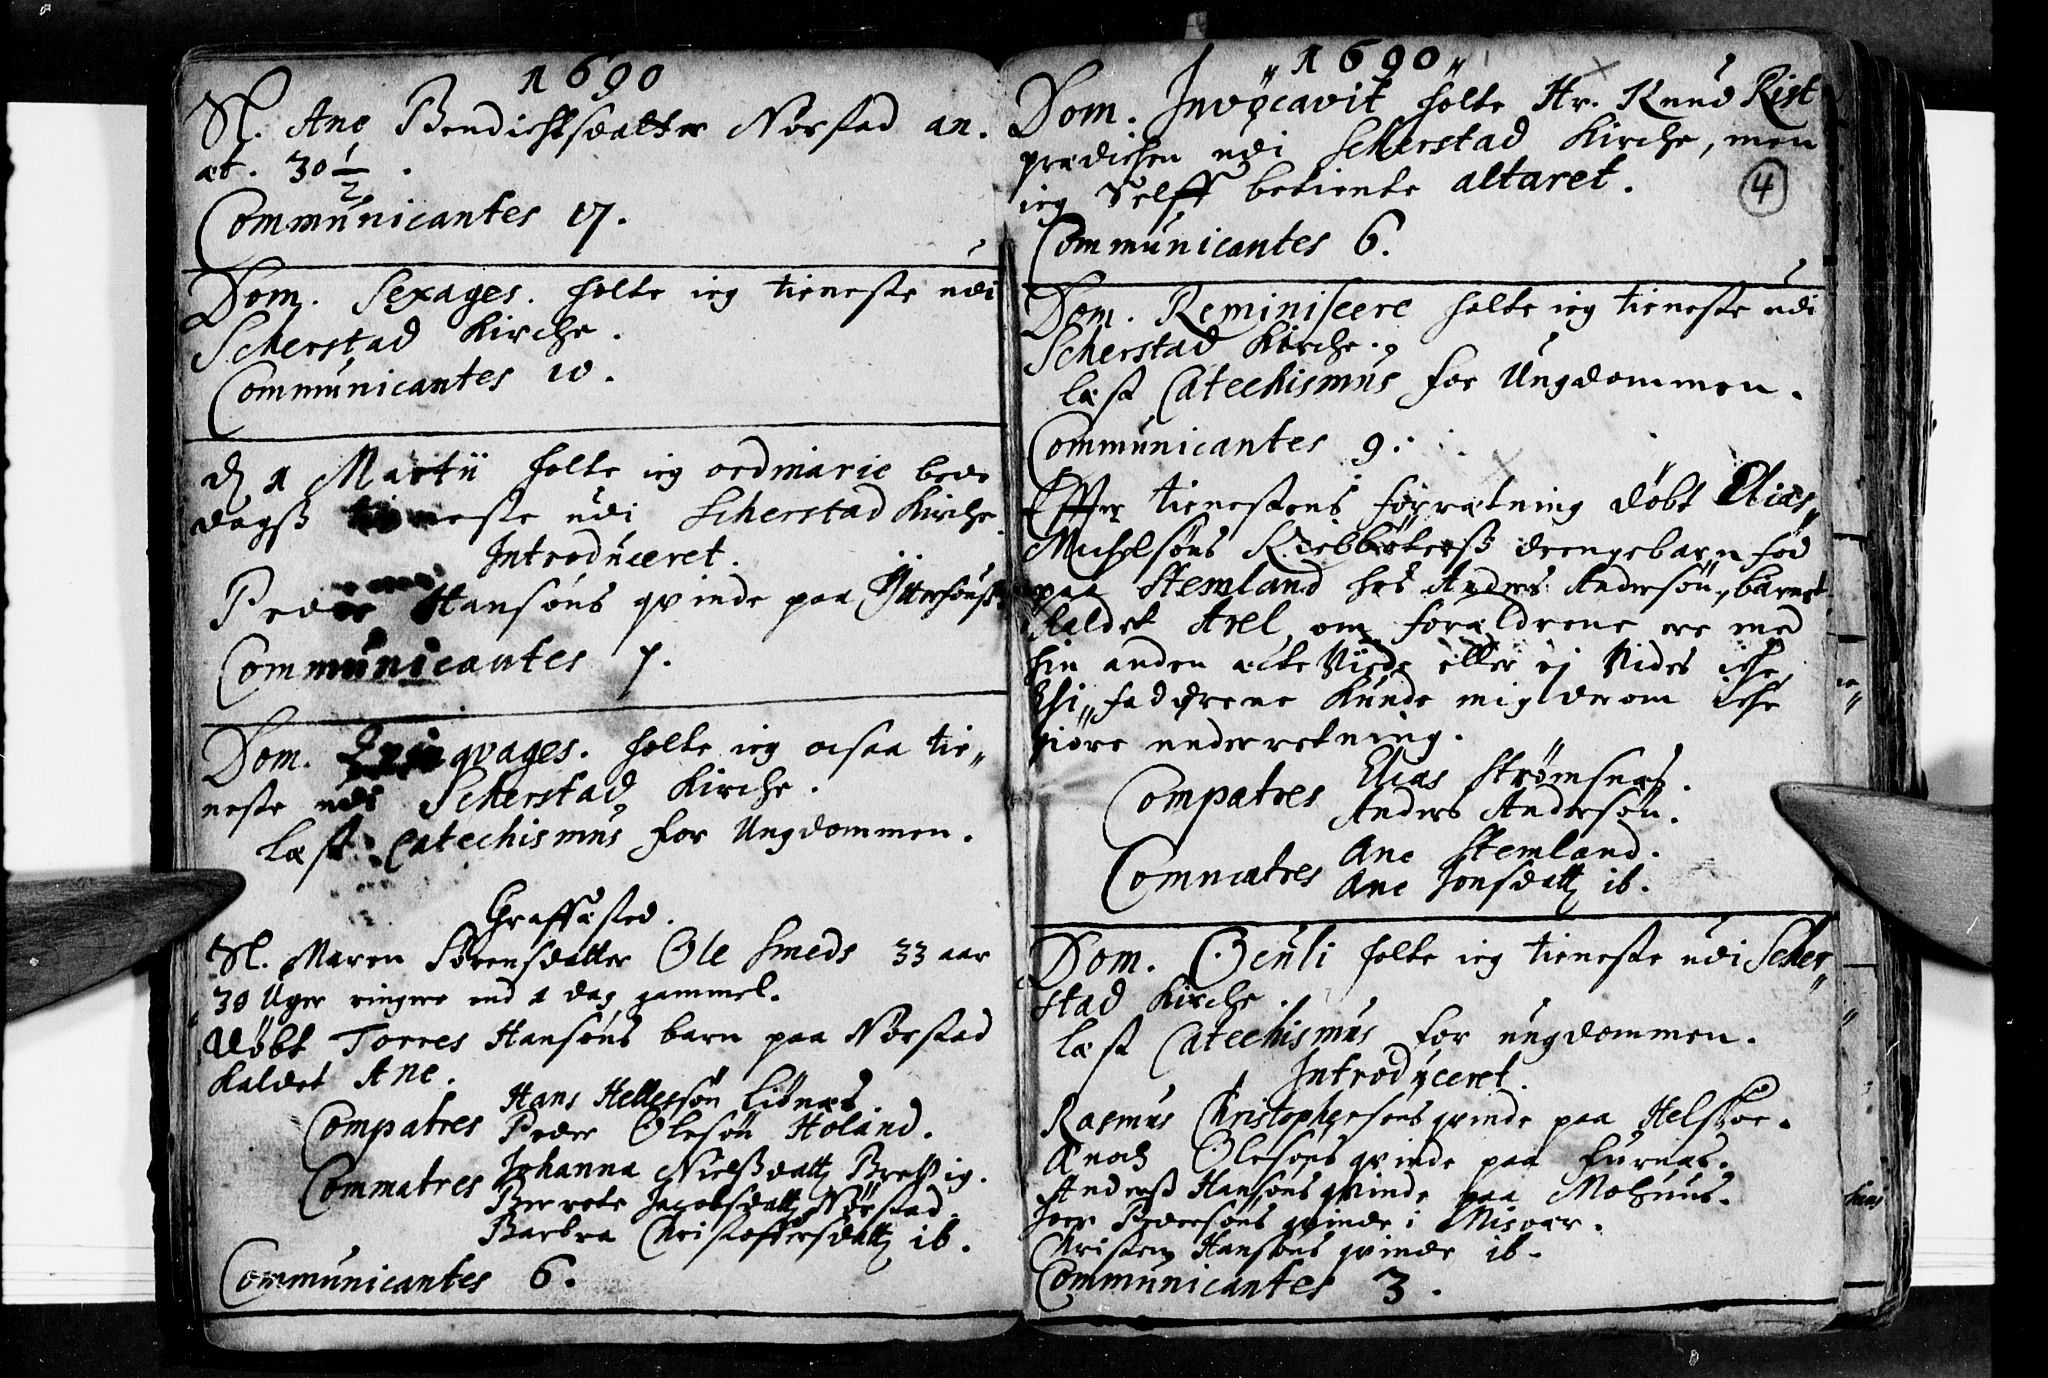 1690
Sl. Ane Bendichtsdatter Norstad an.
æt. 30 1/2.
Communicantes 17.
Dom. Sexages. holte ieg tieneste udi
Scherstad Kirche.
Communicantes 10.
d 1 Martii holte ieg ordinarie bede
dagß tieneste udi Scherstad Kirche
Introduceret.
Peder Hansøns qvinde paa Ytterhuuß
Communicantes 7.
Dom. Quinqvages. holte ieg ocsaa tie„
neste udi Scherstad Kirche.
Læst Catechismus for Ungdommen.
Graffæsted.
Sl. Maren Sørensdatter Ole Smeds 33 aar
30 Uger ringere end 1 dag gammel.
Døbt Torres Hansøns barn paa Norstad
Kaldet Ane.
Compatres Hans Hellessøn Liønæs
Peder Olesøn Holand.
Commatres Johanna Nielßdatt Brevig.
Berrete Jacobsdatt Norstad.
Barbra Christoffersdatt ib.
Communicantes 6.
„1690„
4
Dom. Invocavit holte Hr. Knud Rist
prædichen udi Scherstad Kirche, men
ieg Selff betiente altaret.
Communicantes 6.
Dom. Reminiscere holte ieg tieneste udi
Scherstad Kirche.
læst Catechismus for Ungdommen.
Communicantes 9.
Effter tienestens forretning døbt Elias„
Michelsøns drengebarn fød
paa Stemland hos Anders Andersøn, barnet
Kaldet Axel, om forældrene ere med
hin anden ecte Viede eller ej Vides iche,
thi„ fadderene kunde mig derom iche
giøre underretning.
Compatres Elias Strømsnæs.
Anders Andersøn.
Commatres Ane Stemland.
Ane Jonsdatt ib.
Dom. Oculi holte ieg tieneste udi Scher„
stad Kirche.
læst Catechismus for ungdommen.
Introduceret.
Rasmus Christophersøns qvinde paa
Enoch Olesøns qvinde paa Furnæs.
Anderß Hansøns qvinde paa
Pedersøns qvinde i Misvær.
Christen Hansøns qvinde ib.
Communicantes 3.